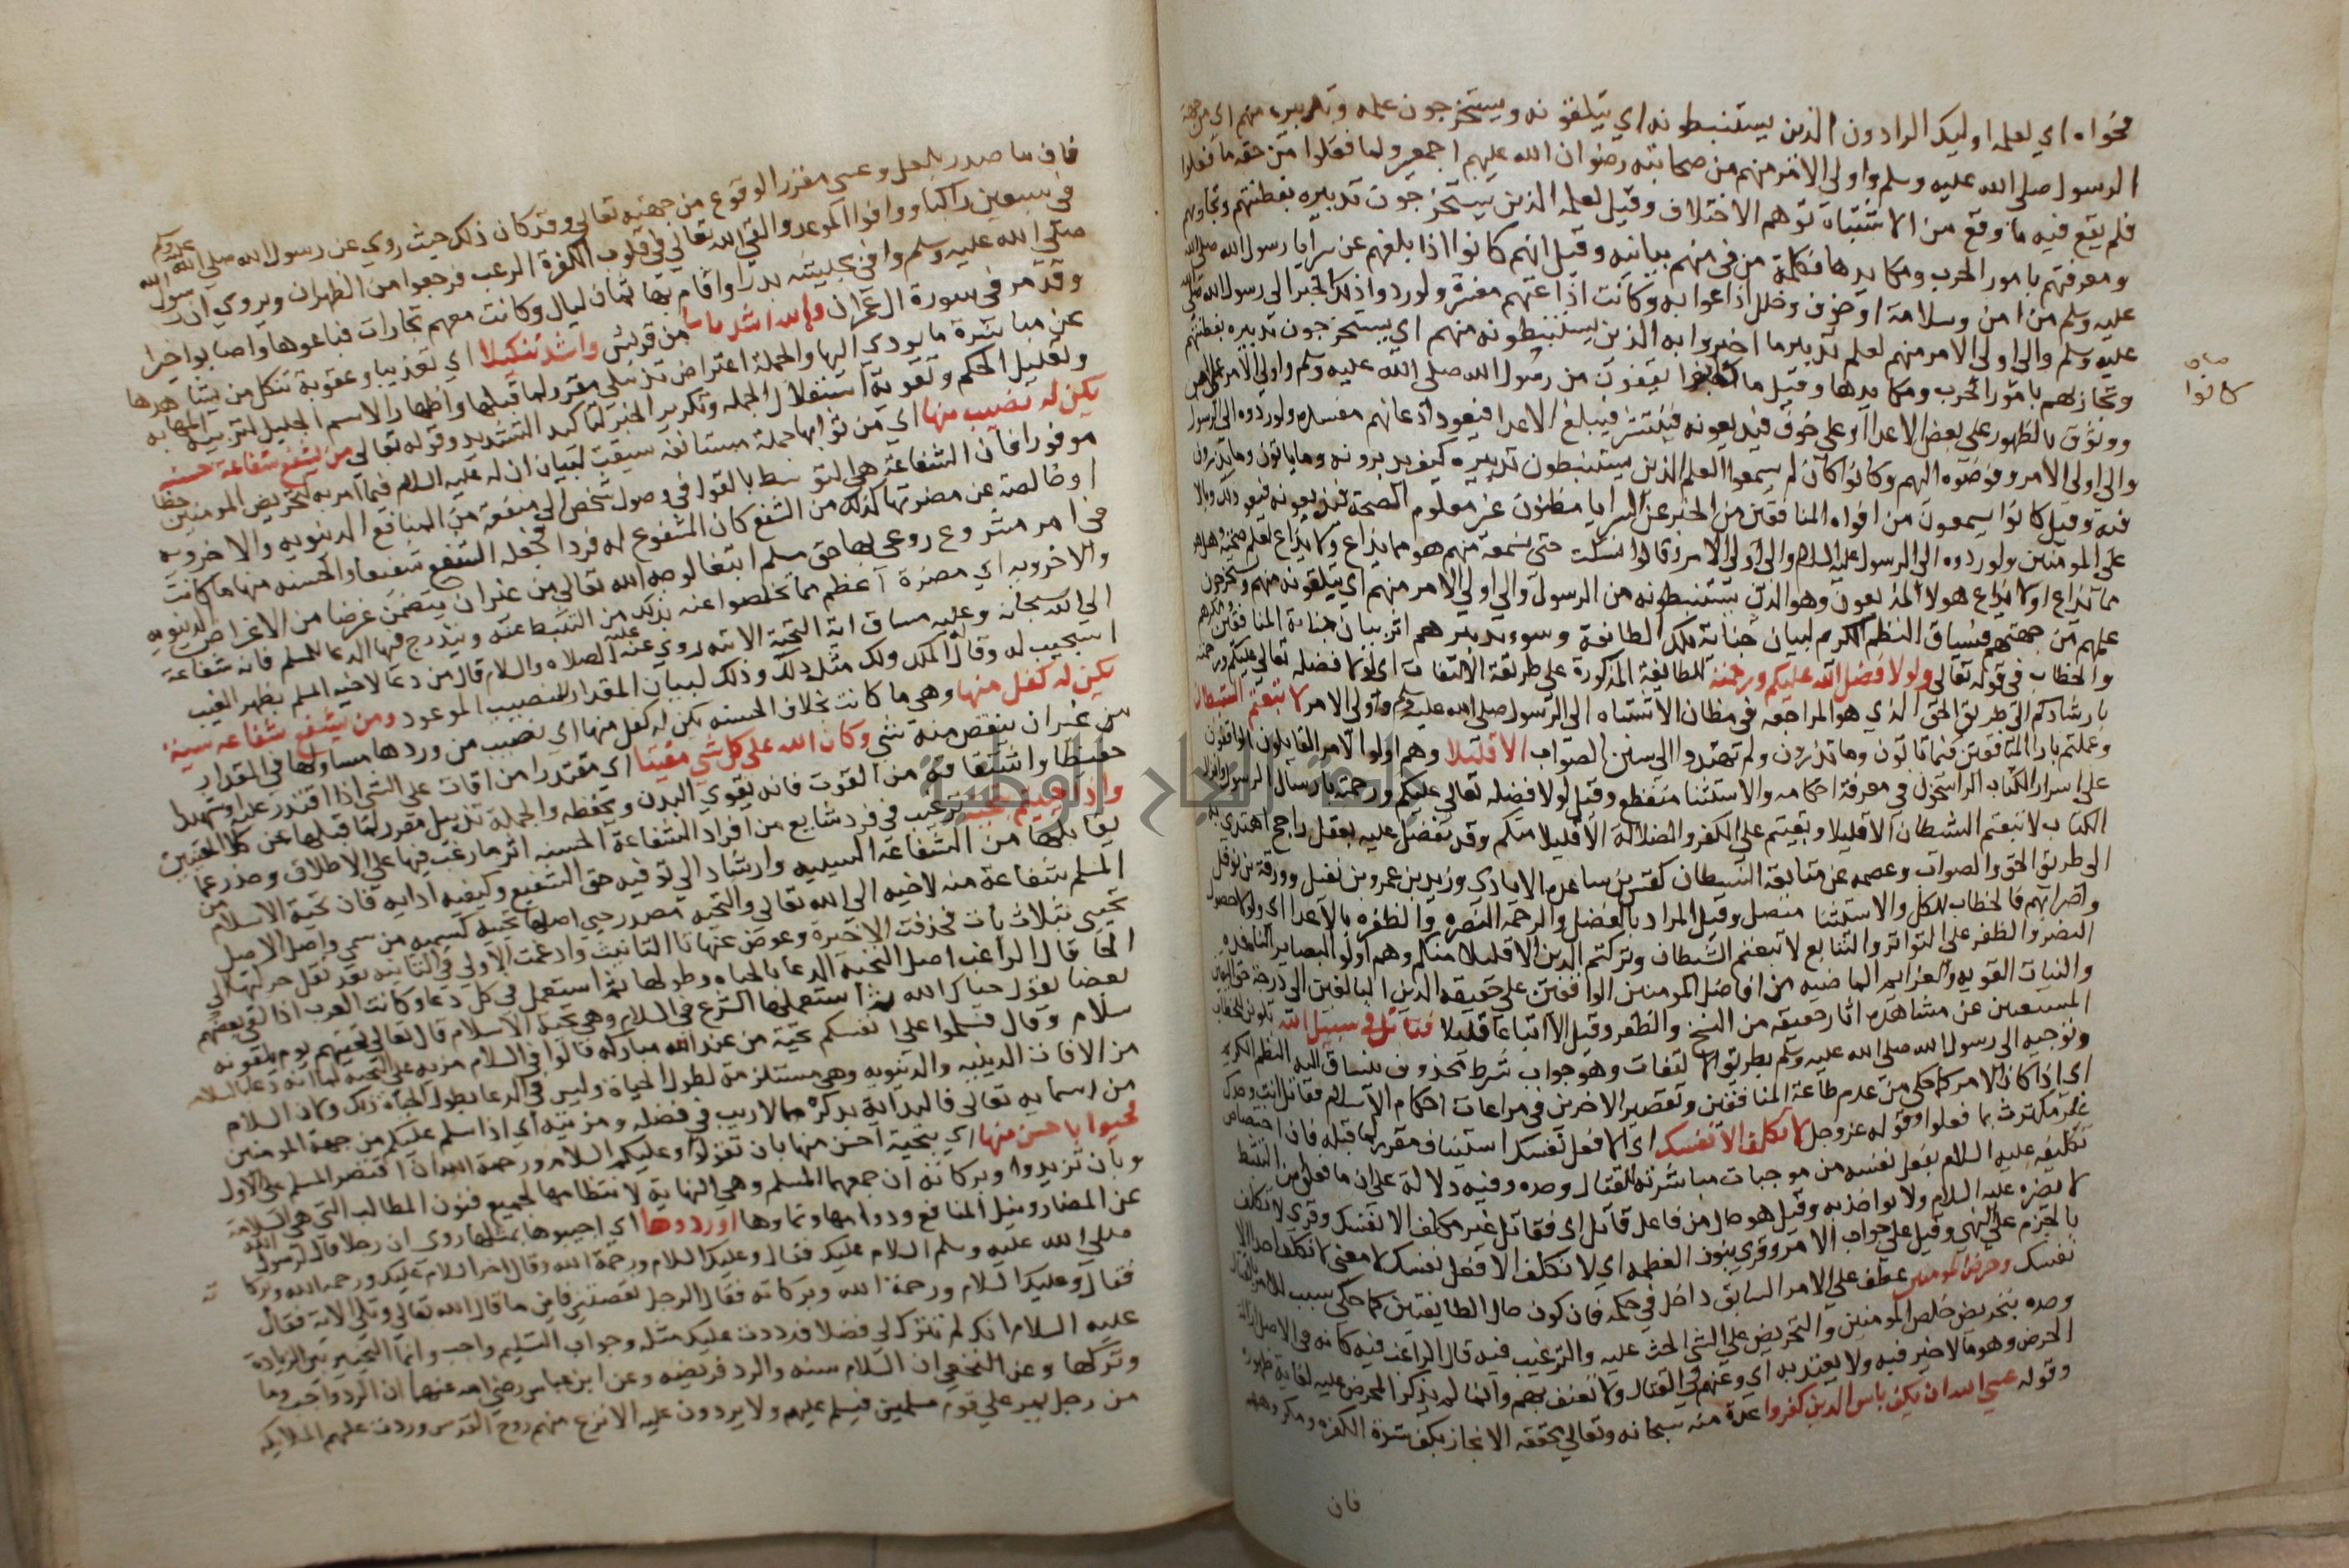 فحواه اي لعلمه اوليك الرادون الذين يستنبطونه اي يتلقونه ويستخرجون علمه وتدبيره منهم اي من جهة
الرسول صلى الله عليه وسلم واولي الامر منهم من صحابته رضوان الله عليهم اجمعين ولما فعلوا من حقه ما فعلوا
فلم يقع فيه ما وقع من الاشتباه توهم الاختلاف وقيل لعلمه الذين يستخرجون تدبيره بفطنتهم وتجاربهم
ومعرفتهم بامور الحرب ومكايدها فكلمة من في منهم بيانيه وقيل انهم كانوا اذا بلغهم عن سرايا رسول الله صلى الله
عليه وسلم من امن وسلامة او خوف وخلل اذاعوا به وكانت اذاعتهم مفسدة ولو ردوا ذلك الخبر الى رسول الله صلى الله
عليه وسلم والى اولي الامر منهم لعلم تدبير ما اخبروا به الذين يستنبطونه منهم اي يستخرجون تدبيره بفطنتهم
وتجاربهم بامور الحرب ومكايدها وقيل كانوا يقفون من رسول الله صلى الله عليه وسلم واولي الامر على امن
ووثوق بالظهور على بعض الاعدا او على خوف فيذيعونه فينتشر فيبلغ الاعدا فيعود اذاعتهم مفسدة ولو ردوه الى الرسول
والى اولي الامر وفوضوه اليهم وكانوا كان لم يسمعوا لعلم الذين يستنبطون تدبيره كيف يدبرونه وما ياتون وما يذرون
فيه وقيل كانوا يسمعون من افواه المنافقين من الخبر عن السرايا مظنونا غير معلوم الصحة فيذيعونه فيعود ذلك وبالا
على المومنين ولو ردوه الى الرسول عليه السلام والى اولي الامر وقالوا نسكت حتى نسمعه منهم هو مما يذاع ولا يذاع لعلم صحته وهل هو
مما يذاع او لا يذاع هولا المذيعون وهم الذين يستنبطونه من الرسول والى اولي الامر منهم اي يتلقونه منهم ويستخرجون
علمهم من جهتهم فمساق النظم الكريم لبيان جناية تلك الطائفة وسوء تدبيرهم اثر بيان جناية المنافقين
والخطاب في قوله تعالى ولولا فضل الله عليكم ورحمته للطايفة المذكورة على طريقة الالتفات اي لولا فضله تعالى عليكم ورحمته
بارشادكم الى طريق الحق الذي هو المراجعه في مظان الاشتباه الى الرسول صلى الله عليه وسلم واولي الامر لاتبعتم الشيطان
وعملتم بارا المنافقين فيما تاتون وما تذرون ولم تهتدوا الى سنن الصواب الا قليلا وهم اولوا الامر القايلون الواقفون
على اسرار الكتاب الراسخون في معرفة احكامه والاستثنا منقطع وقيل لولا فضله تعالى عليكم ورحمته بارسال الرسول وانزال
الكتاب لاتبعتم الشيطان الا قليلا وبقيتم على الكفر والضلالة الا قليلا منكم وقد تفضل عليه بعقل راجح اهتدى به
الى طريق الحق والصواب وعصمه عن متابعة الشيطان كقس بن ساعدة الايادي وزيد بن عمرو بن نفيل وورقة بن نوفل
واضرابهم فالخطاب للكل والاستثنا متصل وقيل المراد بالفضل والرحمه النصره والظفر بالاعدا اي ولولا حصول
النصر والظفر على التواتر والتتابع لاتبعتم الشيطان وتركتم الدين الا قليلا منكم وهم اولوا البصاير النافذه
والنيات القويه والعزايم الماضيه من افاضل المومنين الواقفين على حقيقه الدين البالغين الى درجة حق اليقين
المستغنين عن مشاهدة اثار حقيقه من الفتح والظفر وقيل الا اتباعا قليلا فقاتل في سبيل الله تلوين للخطاب
وتوجيه الى رسول الله صلى الله عليه وسلم بطريق الالتفات وهو جواب شرط محذوف ينساق اليه النظم الكريم
اي اذا كان الامر كما حكي من عدم طاعة المنافقين وتقصير الاخرين في مراعات احكام الاسلام فقاتل انت وحدك
غير مكترث بما فعلوا وقوله عز وجل لا تكلف الا نفسك اي الا فعل نفسك استيناف مقرر لما قبله فان اختصاص
تكليفه عليه السلام بفعل نفسه من موجبات مباشرته للقتال وحده وفيه دلالة على ان ما فعلوه من التثبط
لا يضره عليه السلام ولا يواخذ به وقيل هو حال من فاعل قاتل اي فقاتل غير مكلف الا نفسك وقري لا تكلف
بالجزم على النهي وقيل على جواب الامر وقري بنون العظمه اي لا نكلف الا فعل نفسك لا معنى لا نكلف احدا الا
نفسك وحرض المومنين عطف على الامر السابق داخل في حكمه فان كون حال الطايفتين كما حكي سبب للامر بالقتال
وحده بتحريض خلص المومنين والتحريض على الشي الحث عليه والترغيب فيه قال الراغب فيه كانه في الاصل ازالة
الحرض وهو ما لا خير فيه ولا يعتد به اي رغبهم في القتال ولا تعنف بهم وانما لم يذكر المحرض عليه لغاية ظهوره
وقوله عسى الله ان يكف باس الذين كفروا عدة منه سبحانه وتعالى محققه الانجاز بكف شدة الكفره ومكروههم
فان
كانوا
فان ما صدر بلعل وعسى مقرر الوقوع من جهته تعالى وقد كان ذلك حيث روي عن رسول الله صلى الله
في سبعين راكبا ووافوا الموعد والقى الله تعالى في قلوب الكفرة الرعب فرجعوا من الظهران ويروى ان رسول الله
صلى الله عليه وسلم وافى بجيشه بدرا واقام بها ثمان ليال وكانت معهم تجارات فباعوها واصابوا خيرا
وقد مر في سورة ال عمران والله اشد باسا من قريش واشد تنكيلا اي تعذيبا وعقوبة تنكل من يشاهدها
عن مباشرة ما يودي اليها والجملة اعتراض تذييلي مقرر لما قبلها واظهار الاسم الجليل لتربية المهابه
وتعليل الحكم وتقوية استقلال الجمله وتكرير الخبر لتاكيد التشديد وقوله تعالى من يشفع شفاعة حسنه
يكن له نصيب منها اي من ثوابها جملة مستانفه سيقت لبيان ان له عليه السلام فيما امر به لتحريض المومنين حظا
موفورا فان الشفاعة هي التوسط بالقول في وصول شخص الى منفعة من المنافع الدنيويه والاخرويه
او خالصته عن مضرتها كذلك من الشفع كان المشفوع له فردا فجعله الشفيع شفعا والحسنه منها ما كانت
في امر مشروع روعي بها حق مسلم ابتغا لوجه الله تعالى من غير ان يتضمن غرضا من الاغراض الدنيويه
والاخرويه اي مضرة اعظم مما تخلصوا عنه بذلك من التثبط عنه ويندرج فيها الدعا للمسلم فانه شفاعة
الى الله سبحانه وعليه مساق اية التحية الاتيه روي عنه عليه الصلاه والسلام قال من دعا لاخيه المسلم بظهر الغيب
استجيب له وقال الملك ولك مثل ذلك وذلك لبيان المقدار للنصيب الموعود ومن يشفع شفاعة سيئة
يكن له كفل منها وهي ما كانت بخلاف الحسنه يكن له كفل منها اي نصيب من وزرها مساو لها في المقدار
من غير ان ينقص منه شي وكان الله على كل شي مقيتا اي مقتدرا من اقات على الشي اذا اقتدر عليه او شهيدا
حفيظا واشتقاقه من القوت فانه يقوي البدن ويحفظه والجملة تذييل مقرر لما قبلها عن كلا المعنيين
واذا حييتم بتحية ترغيب في فرد شايع من افراد الشفاعة الحسنه اثر ما رغب فيها على الاطلاق وحذر عما
يقابلها من الشفاعة السيئه وارشاد الى توفيه حق الشفيع وكيفيه ادايه فان تحية الاسلام من
المسلم شفاعة منه لاخيه الى الله تعالى والتحيه مصدر حيي اصلها تحييه كتسميه من سمى واصل الاصل
تحييي بثلاث يات فحذفت الاخيرة وعوض عنها تا التانيث وادغمت الاولى في الثانيه بعد نقل حركتها الى
الحا قال الراغب اصل التحيه الدعا بالحياه وطولها ثم استعمل في كل دعا وكانت العرب اذا لقي بعضهم
بعضا يقول حياك الله ثم استعملها الشرع في السلام وهي تحية الاسلام قال تعالى تحيتهم يوم يلقونه
سلام وقال فسلموا على انفسكم تحية من عند الله مباركه قالوا في السلام مزيه على التحيه لما انه دعا بالسلامه
من الافات الدينيه والدنيويه وهي مستلزمة لطول الحياة وليس في الدعا بطول الحياة ذلك ولان السلام
من اسمايه تعالى فالبداية بذكره مما لا ريب في فضله ومزيته اي اذا سلم عليكم من جهة المومنين
فحيوا باحسن منها اي بتحية احسن منها بان تقولوا وعليكم السلام ورحمة الله ان اقتصر المسلم على الاول
وبان تزيدوا وبركاته ان جمعهما المسلم وهي النهاية لانتظامها لجميع فنون المطالب التي هي السلامة
عن المضار ونيل المنافع ودوامها ونماوها او ردوها اي اجيبوها بمثلها روي ان رجلا قال لرسول الله
صلى الله عليه وسلم السلام عليك فقال وعليك السلام ورحمة الله وقال اخر السلام عليك ورحمة الله وبركاته
فقال وعليك السلام ورحمة الله وبركاته فقال الرجل نقصتني فاين ما قال الله تعالى وتلى الاية فقال
عليه السلام انك لم تترك لي فضلا فرددت عليك مثله وجواب التسليم واجب وانما التخيير بين الزيادة
وتركها وعن النخعي ان السلام سنه والرد فريضه وعن ابن عباس رضي الله عنهما ان الرد واجب وما
من رجل يمر على قوم مسلمين فيسلم عليهم ولا يردون عليه الا نزع منهم روح القدس وردت عليهم الملايكه
جامعة النجاح الوطنية